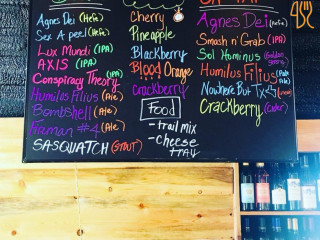 Agnes Dei (Hefe)
Sex A peel
Lux Mundi (IPA)
AXIS (IPA)
Conspiracy Theory (IPA)
Humilus Filius (Ale)
Bombshell (Ale)
Fireman #4 (Ale)
SASQUATCH (STOUT)
Cherry
Pineapple
Blackberry
Blood Orange
Crackberry
Food
- trail mix
- cheese
TRAY
Agnes Dei (Hefe)
Smash n' Grab (IPA)
Sol Huminus
Humilus Filius (Pale Ale)
Nowhere But Tx
Crackberry (Cider)